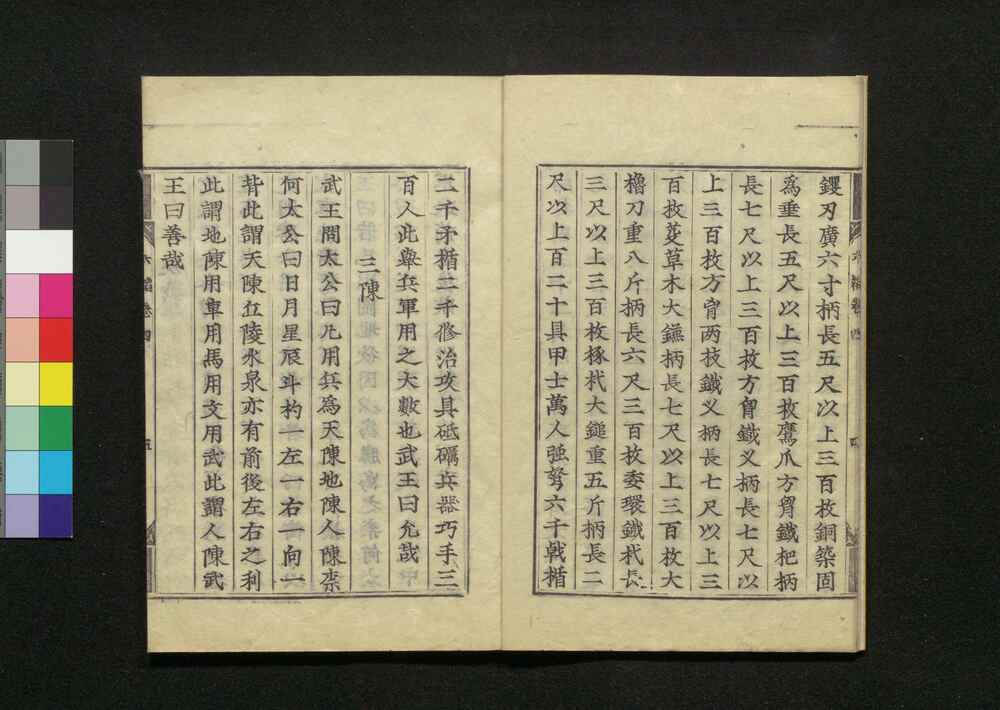 钁刃廣六寸柄長五尺以上三百枚銅築固
爲垂長五尺以上三百枚鷹爪方胷鐵杷柄
長七尺以上三百枚方胷鐵乂柄長七尺以
上三百枚方胷两枝鐵乂柄長七尺以上三
百枚芟草木大鎌柄長七尺以上三百枚大
櫓刀重八斤柄長六尺三百枚委環鐵杙長
三尺以上三百枚椓杙大鎚重五斤柄長二
尺以上百二十具甲士萬人強弩六千戟楯
二千矛楯二千修治攻具砥礪兵器巧手三
百人此舉兵軍用之大數也武王曰允哉
三陳
武王問太公曰凡用兵爲天陳地陳人陳柰
何太公曰日月星辰斗杓一左一右一向一
背此謂天陳丘陵水泉亦有前後左右之利
此謂地陳用車用馬用文用武此謂人陳武
王曰善哉
六韜卷四
五